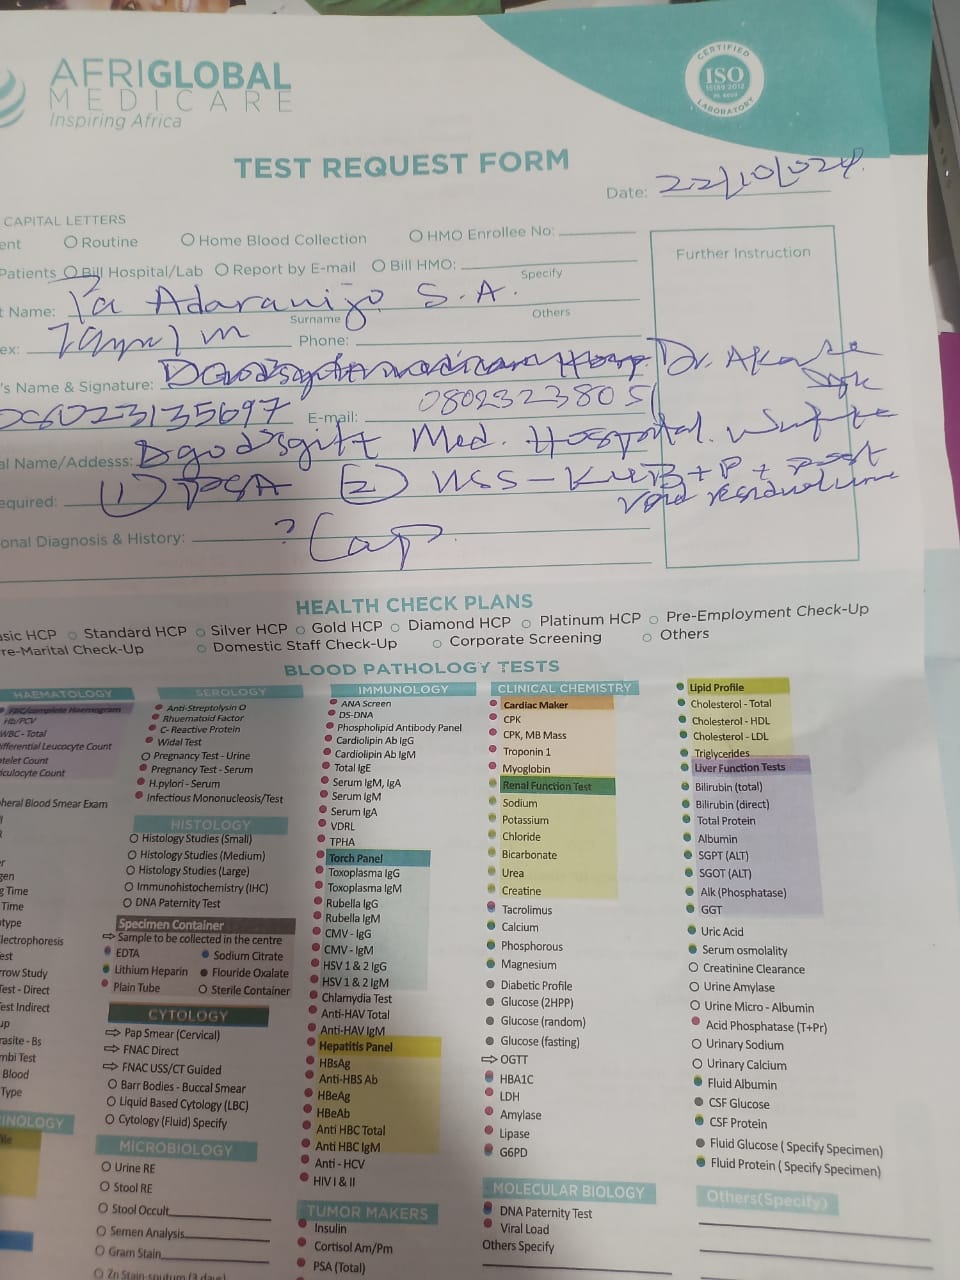 AFRIGLOBAL
MEDICARE
Inspiring Africa
CERTIFIED
ISO
15189 2012
LABORATORY
TEST REQUEST FORM
Date: 22/10/024
CAPITAL LETTERS
ent Routine Home Blood Collection HMO Enrollee No:
Patients Bill Hospital/Lab Report by E-mail Bill HMO:
Specify
Further Instruction
t Name: Pa Adaranijo S.A.
Surname Others
ex: m Phone:
's Name & Signature: Dr.
E-mail: 08023238051
al Name/Addesss: Dgodsgift Med. Hospital.
equired: (1) PSA (2) USS - KUB + P + post
void residual
onal Diagnosis & History: ? Cap.
HEALTH CHECK PLANS
asic HCP Standard HCP Silver HCP Gold HCP Diamond HCP Platinum HCP Pre-Employment Check-Up
re-Marital Check-Up Domestic Staff Check-Up Corporate Screening Others
BLOOD PATHOLOGY TESTS
HAEMATOLOGY
FBC/complete Haemogram
Hb/PCV
WBC - Total
ifferential Leucocyte Count
atelet Count
iculocyte Count
heral Blood Smear Exam
gen
g Time
Time
type
lectrophoresis
est
rrow Study
Test - Direct
Test Indirect
up
rasite - Bs
mbi Test
Blood
Type
INOLOGY
SEROLOGY
Anti-Streptolysin O
Rhuematoid Factor
C- Reactive Protein
Widal Test
Pregnancy Test - Urine
Pregnancy Test - Serum
H.pylori - Serum
Infectious Mononucleosis/Test
HISTOLOGY
Histology Studies (Small)
Histology Studies (Medium)
Histology Studies (Large)
Immunohistochemistry (IHC)
DNA Paternity Test
Specimen Container
Sample to be collected in the centre
EDTA Sodium Citrate
Lithium Heparin Flouride Oxalate
Plain Tube Sterile Container
CYTOLOGY
Pap Smear (Cervical)
FNAC Direct
FNAC USS/CT Guided
Barr Bodies - Buccal Smear
Liquid Based Cytology (LBC)
Cytology (Fluid) Specify
MICROBIOLOGY
Urine RE
Stool RE
Stool Occult
Semen Analysis
Gram Stain
Zn Stain-sputum (3 days)
IMMUNOLOGY
ANA Screen
DS-DNA
Phospholipid Antibody Panel
Cardiolipin Ab IgG
Cardiolipin Ab IgM
Total IgE
Serum IgM, IgA
Serum IgM
Serum IgA
VDRL
TPHA
Torch Panel
Toxoplasma IgG
Toxoplasma IgM
Rubella IgG
Rubella IgM
CMV - IgG
CMV - IgM
HSV 1 & 2 IgG
HSV 1 & 2 IgM
Chlamydia Test
Anti-HAV Total
Anti-HAV IgM
Hepatitis Panel
HBsAg
Anti-HBS Ab
HBeAg
HBeAb
Anti HBC Total
Anti HBC IgM
Anti - HCV
HIV I & II
TUMOR MAKERS
Insulin
Cortisol Am/Pm
PSA (Total)
CLINICAL CHEMISTRY
Cardiac Maker
CPK
CPK, MB Mass
Troponin 1
Myoglobin
Renal Function Test
Sodium
Potassium
Chloride
Bicarbonate
Urea
Creatine
Tacrolimus
Calcium
Phosphorous
Magnesium
Diabetic Profile
Glucose (2HPP)
Glucose (random)
Glucose (fasting)
OGTT
HBA1C
LDH
Amylase
Lipase
G6PD
MOLECULAR BIOLOGY
DNA Paternity Test
Viral Load
Others Specify
Lipid Profile
Cholesterol - Total
Cholesterol - HDL
Cholesterol - LDL
Triglycerides
Liver Function Tests
Bilirubin (total)
Bilirubin (direct)
Total Protein
Albumin
SGPT (ALT)
SGOT (ALT)
Alk (Phosphatase)
GGT
Uric Acid
Serum osmolality
Creatinine Clearance
Urine Amylase
Urine Micro - Albumin
Acid Phosphatase (T+Pr)
Urinary Sodium
Urinary Calcium
Fluid Albumin
CSF Glucose
CSF Protein
Fluid Glucose ( Specify Specimen)
Fluid Protein ( Specify Specimen)
Others(Specify)